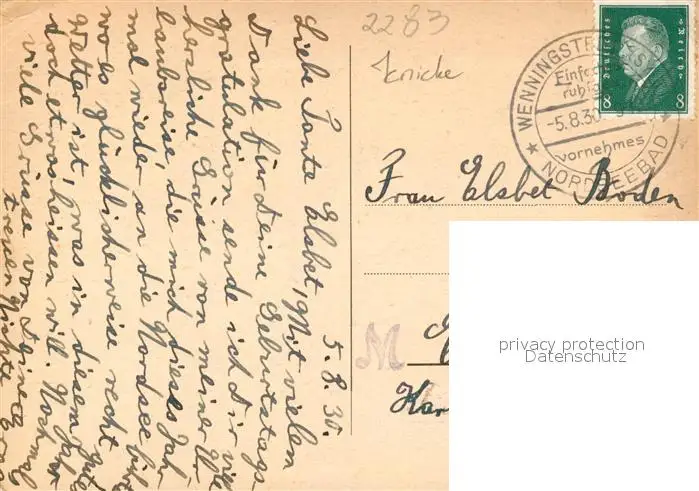 5. 8. 30.
Liebe Tante Elsbet, Mit vielen
Dank für Deine Geburtstags-
gratulation sende ich Dir viele
herzliche Grüsse von meiner Ur-
laubsreise, die mich dieses Jahr
mal wieder an die Nordsee führt
wo es glücklicherweise recht gutes
Wetter ist, was in diesem Jahr
doch etwas heissen will. Nochmals
viele Grüsse von Deiner
treuen Nichte
2283
Knicke
Deutsches Reich
8 8
WENNINGSTE
Einfa
ruhig
-5.8.30
vornehmes
NORDSEEBAD
Frau Elsbet Boden
M
Har
privacy protection
Datenschutz